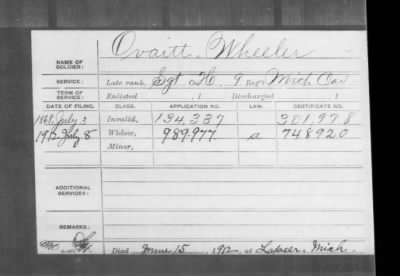 NAME OF SOLDIER: Ovaitt, Wheeler
SERVICE: Late rank, Sgt Co. H, 9 Reg't Mich Cav
TERM OF SERVICE: Enlisted , 1 Discharged , 1
DATE OF FILING. CLASS. APPLICATION NO. LAW. CERTIFICATE NO.
1868, July 3 Invalid, 134,337 301,978
1912, July 8 Widow, 989.977 a 748920
Minor,
ADDITIONAL SERVICES:
REMARKS:
Died June 15, 1912, at Lapeer, Mich.